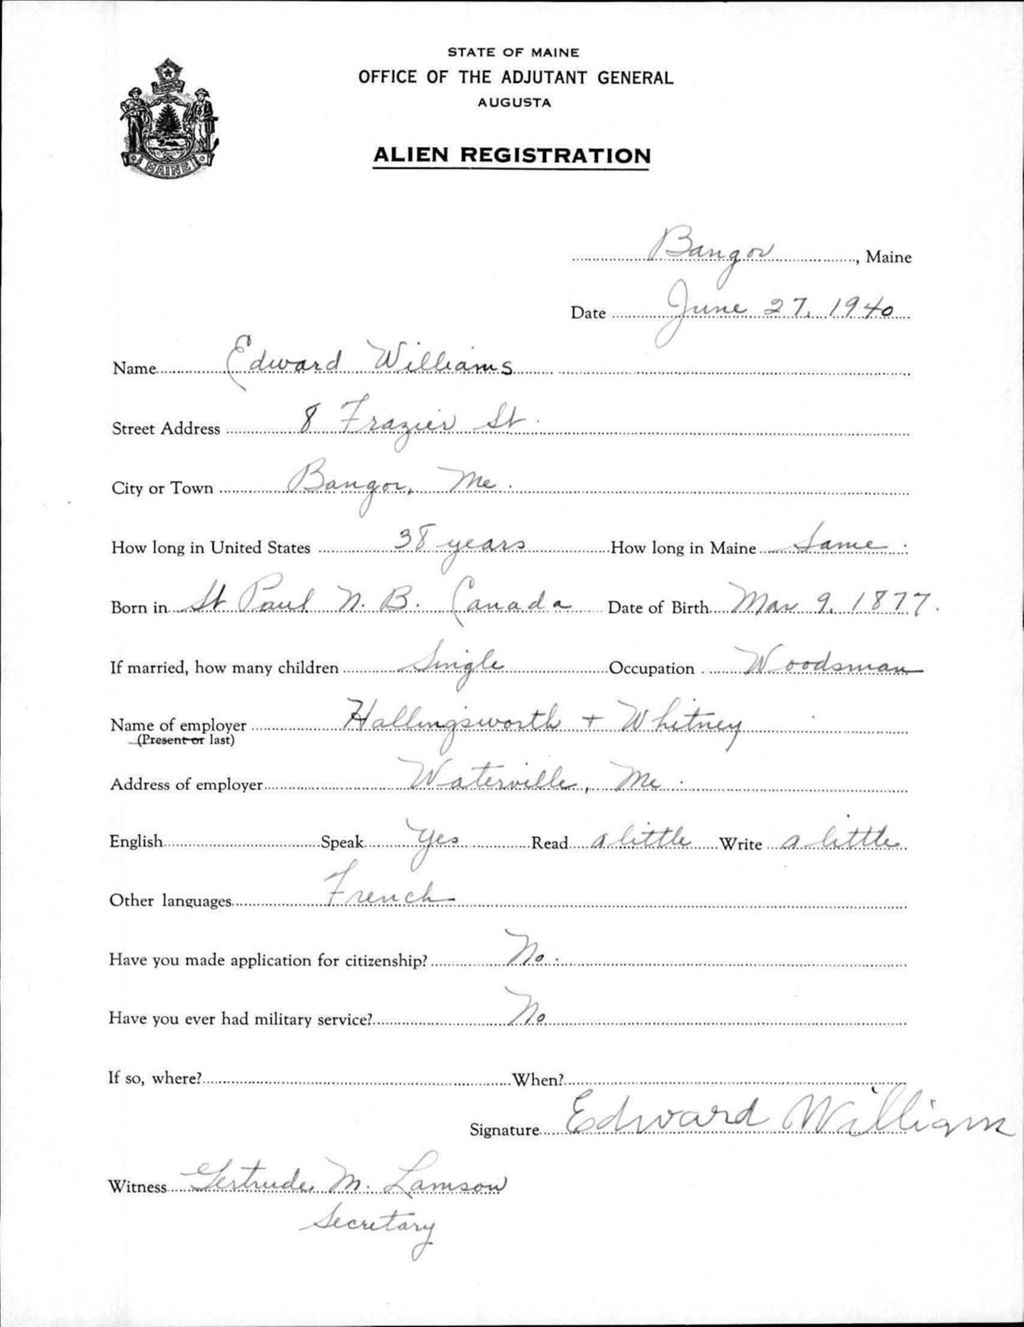 STATE OF MAINE
OFFICE OF THE ADJUTANT GENERAL
AUGUSTA
ALIEN REGISTRATION
MAINE
Bangor, Maine
Date June 27, 1940
Name Edward Williams
Street Address 8 Frazier St.
City or Town Bangor, Me.
How long in United States 38 years How long in Maine Same
Born in St Paul N. B. Canada Date of Birth Mar 9, 1877.
If married, how many children Single Occupation Woodsman
Name of employer Hallingsworth + Whitney
(Present or last)
Address of employer Waterville, Me.
English Speak Yes Read a little Write a little
Other languages French
Have you made application for citizenship? No.
Have you ever had military service? No
If so, where? When?
Signature Edward William
Witness Gertrude M. Lamson
Secretary